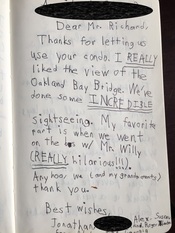 Dear Mr. Richard,
Thanks for letting us
use your condo. I REALLY
liked the view of the
Oakland Bay Bridge. We've
done some INCREDIBLE
sightseeing. My favorite
part is when we went
on the bus w/ Mr. Willy
(REALLY hilarious!!!).
Any hoo, we (and my grandparents)
thank you.
Best wishes,
Jonathan,
Alex,